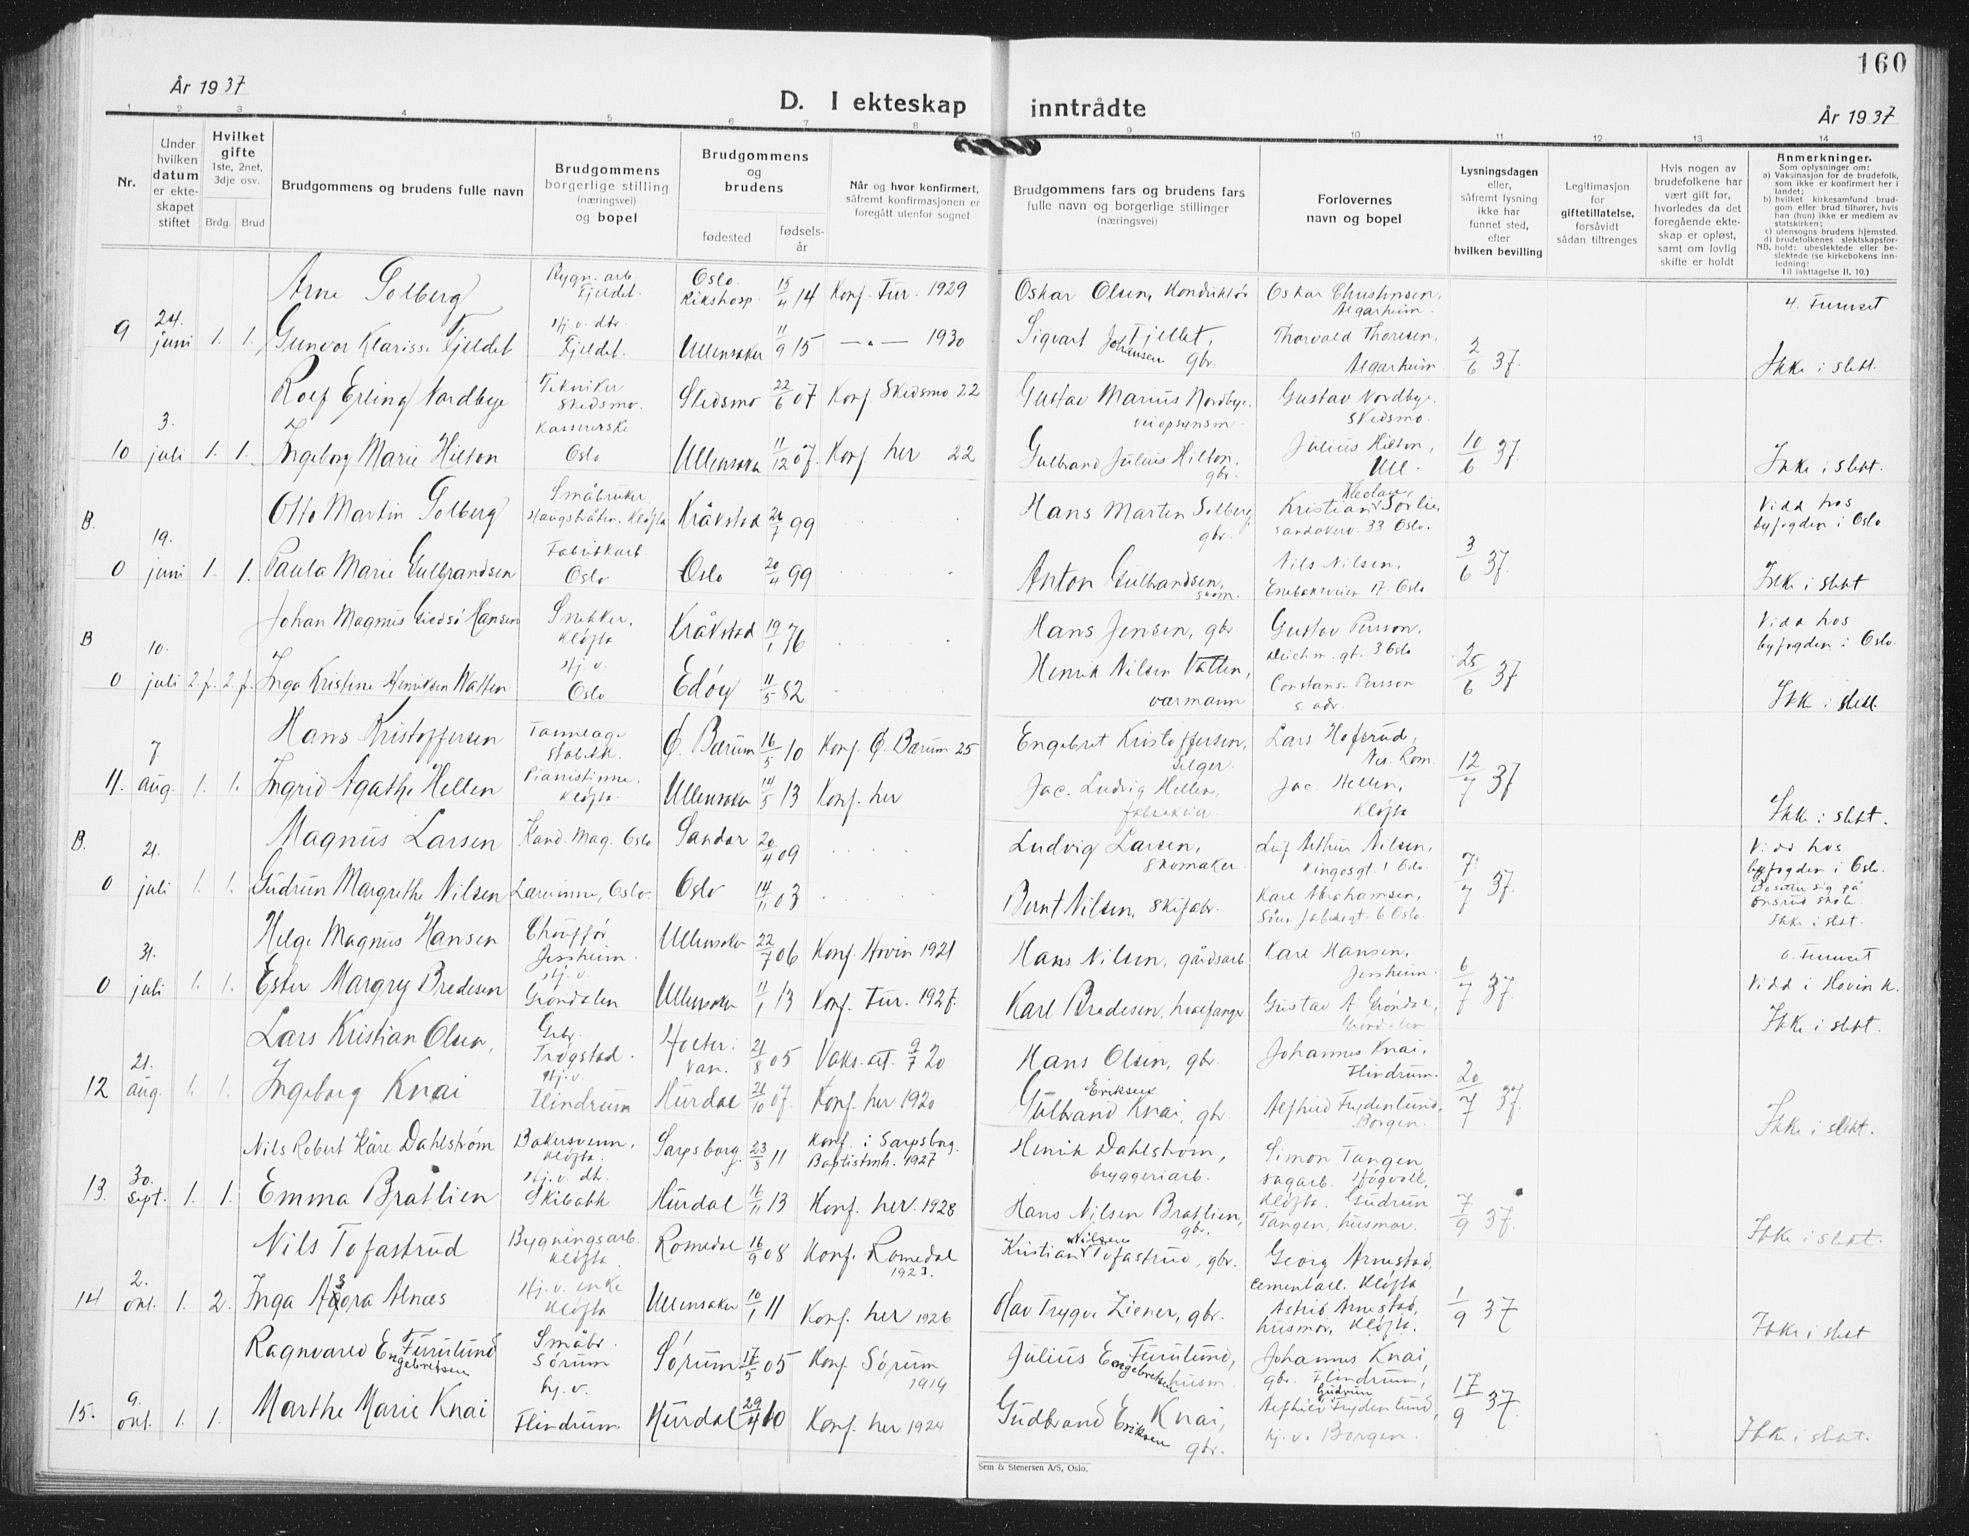 160
År 1937
D. I ekteskap inntrådte
År 1937
1 2 3 4 5 6 7 8 9 10 11 12 13 14
Nr.
Under hvilken datum er ekteskapet stiftet
Hvilket gifte
1ste, 2net, 3dje osv.
Brdg. Brud
Brudgommens og brudens fulle navn
Brudgommens borgerlige stilling (næringsvei) og bopel
Brudgommens og brudens
fødested
fødselsår
Når og hvor konfirmert, såfremt konfirmasjonen er foregått utenfor sognet
Brudgommens fars og brudens fars fulle navn og borgerlige stillinger (næringsvei)
Forlovernes navn og bopel
Lysningsdagen eller, såfremt lysning ikke har funnet sted, efter hvilken bevilling
Legitimasjon for giftetillatelse, forsåvidt sådan tiltrenges
Hvis nogen av brudefolkene har vært gift før, hvorledes da det foregående ekteskap er opløst, samt om lovlig skifte er holdt
Anmerkninger.
Som oplysninger om:
a) Vaksinasjon for de brudefolk, som ikke er konfirmert her i landet;
b) hvilket kirkesamfund brudgom eller brud tilhører, hvis han (hun) ikke er medlem av statskirken;
c) utensogns brudens hjemsted.
d) brudefolkenes slektskapsforhold: ubeslektede eller beslektede (se kirkebokens innledning:
NB. Til iakttagelse II. 10.)
Arne Solberg Bygn. arb. Fjeldet. Oslo Rikshosp. 15/4 14 Konf. Fur. 1929 Oskar Olsen, Konduktør Oskar Christensen, Algarheim. 4. Furuset
9 24. juni 1. 1. Gunvor Klarisse Fjeldet Hj. v. dtr. Fjeldet. Ullensaker 11/9 15 —"— 1930 Sigvart Johansen Fjellet, gbr. Thorvald Thoresen, Algarheim. 2/6 37. Ikke i slekt.
Rolf Erling Nordbye Tekniker Skedsmo. Skedsmo 22/6 07 Konf. Skedsmo 22 Gustav Marius Nordbye, veiopsynsm. Gustav Nordbye, Skedsmo.
10 3. juli 1. 1. Ingeborg Marie Hilton Kassererske Oslo Ullensaker 11/12 07. Konf her 22 Gulbrand Julius Hilton, gbr. Julius Hilton, Ull. 10/6 37. Ikke i slekt.
B. Otto Martin Solberg Småbruker Kløfta Kråkstad 26/7 99 Hans Martin Solberg, gbr. Kristian Sørlie, Sandakerv. 33 Oslo. Vidd hos byfogden i Oslo
0 19. juni 1. 1. Paula Marie Gulbrandsen Fabrikkarb. Oslo Oslo 20/4 99 Anton Gulbrandsen, skom. Nils Nilsen, Enebakkveien 17. Oslo 3/6 37. Ikke i slekt
B Johan Magnus Hansen Snekker, Kløfta Kråkstad 19/1 76 Hans Jensen, gbr. Gustav Persson, Deichm. gt. 3 Oslo Vidd hos byfogden i Oslo.
0 10. juli 2.f. 2 f. Inga Kristine Henriksen Watten Hj. v. Oslo Edøy 11/5 82 Henrik Nilsen Vatten, Constanse Persson s. adr. 25/6 37 Ikke i slekt.
Hans Kristoffersen Tannlæge Stabekk. Ø. Bærum 16/5 10 Konf. Ø. Bærum 25 Engebret Kristoffersen, selger. Lars Hofsrud, Nes. Rom.
11. 7 aug. 1. 1. Ingrid Agathe Hellen Pianistinne. Kløfta. Ullensaker 14/5 13 Konf. her Jac. Ludvig Hellen, Jac. Hellen, Kløfta 12/7 37 Ikke i slekt.
B. Magnus Larsen Kand. Mag. Oslo Sandar 20/4 09 Ludvig Larsen, skomaker. Leif Arthur Nilsen, Kingosgt 1 Oslo. Vidd hos byfogden i Oslo. Bosetter sig på Onsrud skole. Ikke i slekt.
0 21. juli 1. 1. Gudrun Margrethe Nilsen Lærerinne, Oslo. Oslo 14/11 03 Bernt Nilsen, skifabr. Kåre Abrahamsen, 6 Oslo. 7/7 37.
Helge Magnus Hansen Chauffør Jessheim. Ullensaker 22/7 06 Konf. Hovin 1921 Hans Nilsen, gårdsarb Kåre Hansen, Jessheim. o. Furuset
0 31. juli 1. 1. Ester Margry Bredesen Hj. v. Grøndalen Ullensaker 11/1 13 Konf. Fur. 1927. Karl Bredesen, hvalfanger Gustav A. Grøndal, Grøndalen 6/7 37. Vidd i Hovin k. Ikke i slekt.
Lars Kristian Olsen, Gbr. Trøgstad. 21/8 05 Vaks. att. 9/7 20 Hans Olsen, gbr. Johannes Knai, Flindrum.
12 21. aug. 1. 1. Ingeborg Knai Hj. v. Flindrum Hurdal 21/10 07. Konf. her 1920 Gulbrand Eriksen Knai, gbr. Alfhild Frydenlund, Borgen. 20/7 37. Ikke i slekt.
Nils Robert Kåre Dahlstrøm Bakersvenn, Kløfta. Sarpsborg 23/8 11 Konf. i Sarpsborg Baptistmh. 1927 Henrik Dahlstrøm, bryggeriarb. Simon Tangen sagarb. Høgvoll, Kløfta.
13. 30. sept. 1. 1. Emma Bratlien Hj. v. dtr. Skibakk Hurdal 16/11 13 Konf. her. 1928 Hans Nilsen Bratlien, gbr. Gudrun Tangen, husmor. 7/9 37. Ikke i slekt.
Nils Tofastrud Bygningsarb. Kløfta Romedal 16/9 08 Konf. Romedal 1923. Kristian Nilsen Tofastrud, gbr. Georg Arnestad, cementarb. Kløfta
14 2. okt. 1. 2. Inga Alnæs Hj. v. enke Kløfta Ullensaker 10/1 11 Konf. her 1926 Olav Trygve Ziener, gbr. Astrid Arnestad, husmor, Kløfta. 1/9 37 Ikke i slekt
Ragnvald Engebretsen Furulund Småbr. Sørum Sørum 17/5 05 Konf. Sørum 1919 Julius Engebretsen Furulund, husm. Johannes Knai, gbr. Flindrum,
15. 9. okt. 1. 1. Marthe Marie Knai hj. v. Flindrum Hurdal 29/4 10 Konf. her 1924 Gudbrand Eriksen Knai, gbr. Alfhild Gudrun Frydenlund, hj. v. Borgen. 17/9 37. Ikke i slekt.
Sem & Stenersen A/S, Oslo.